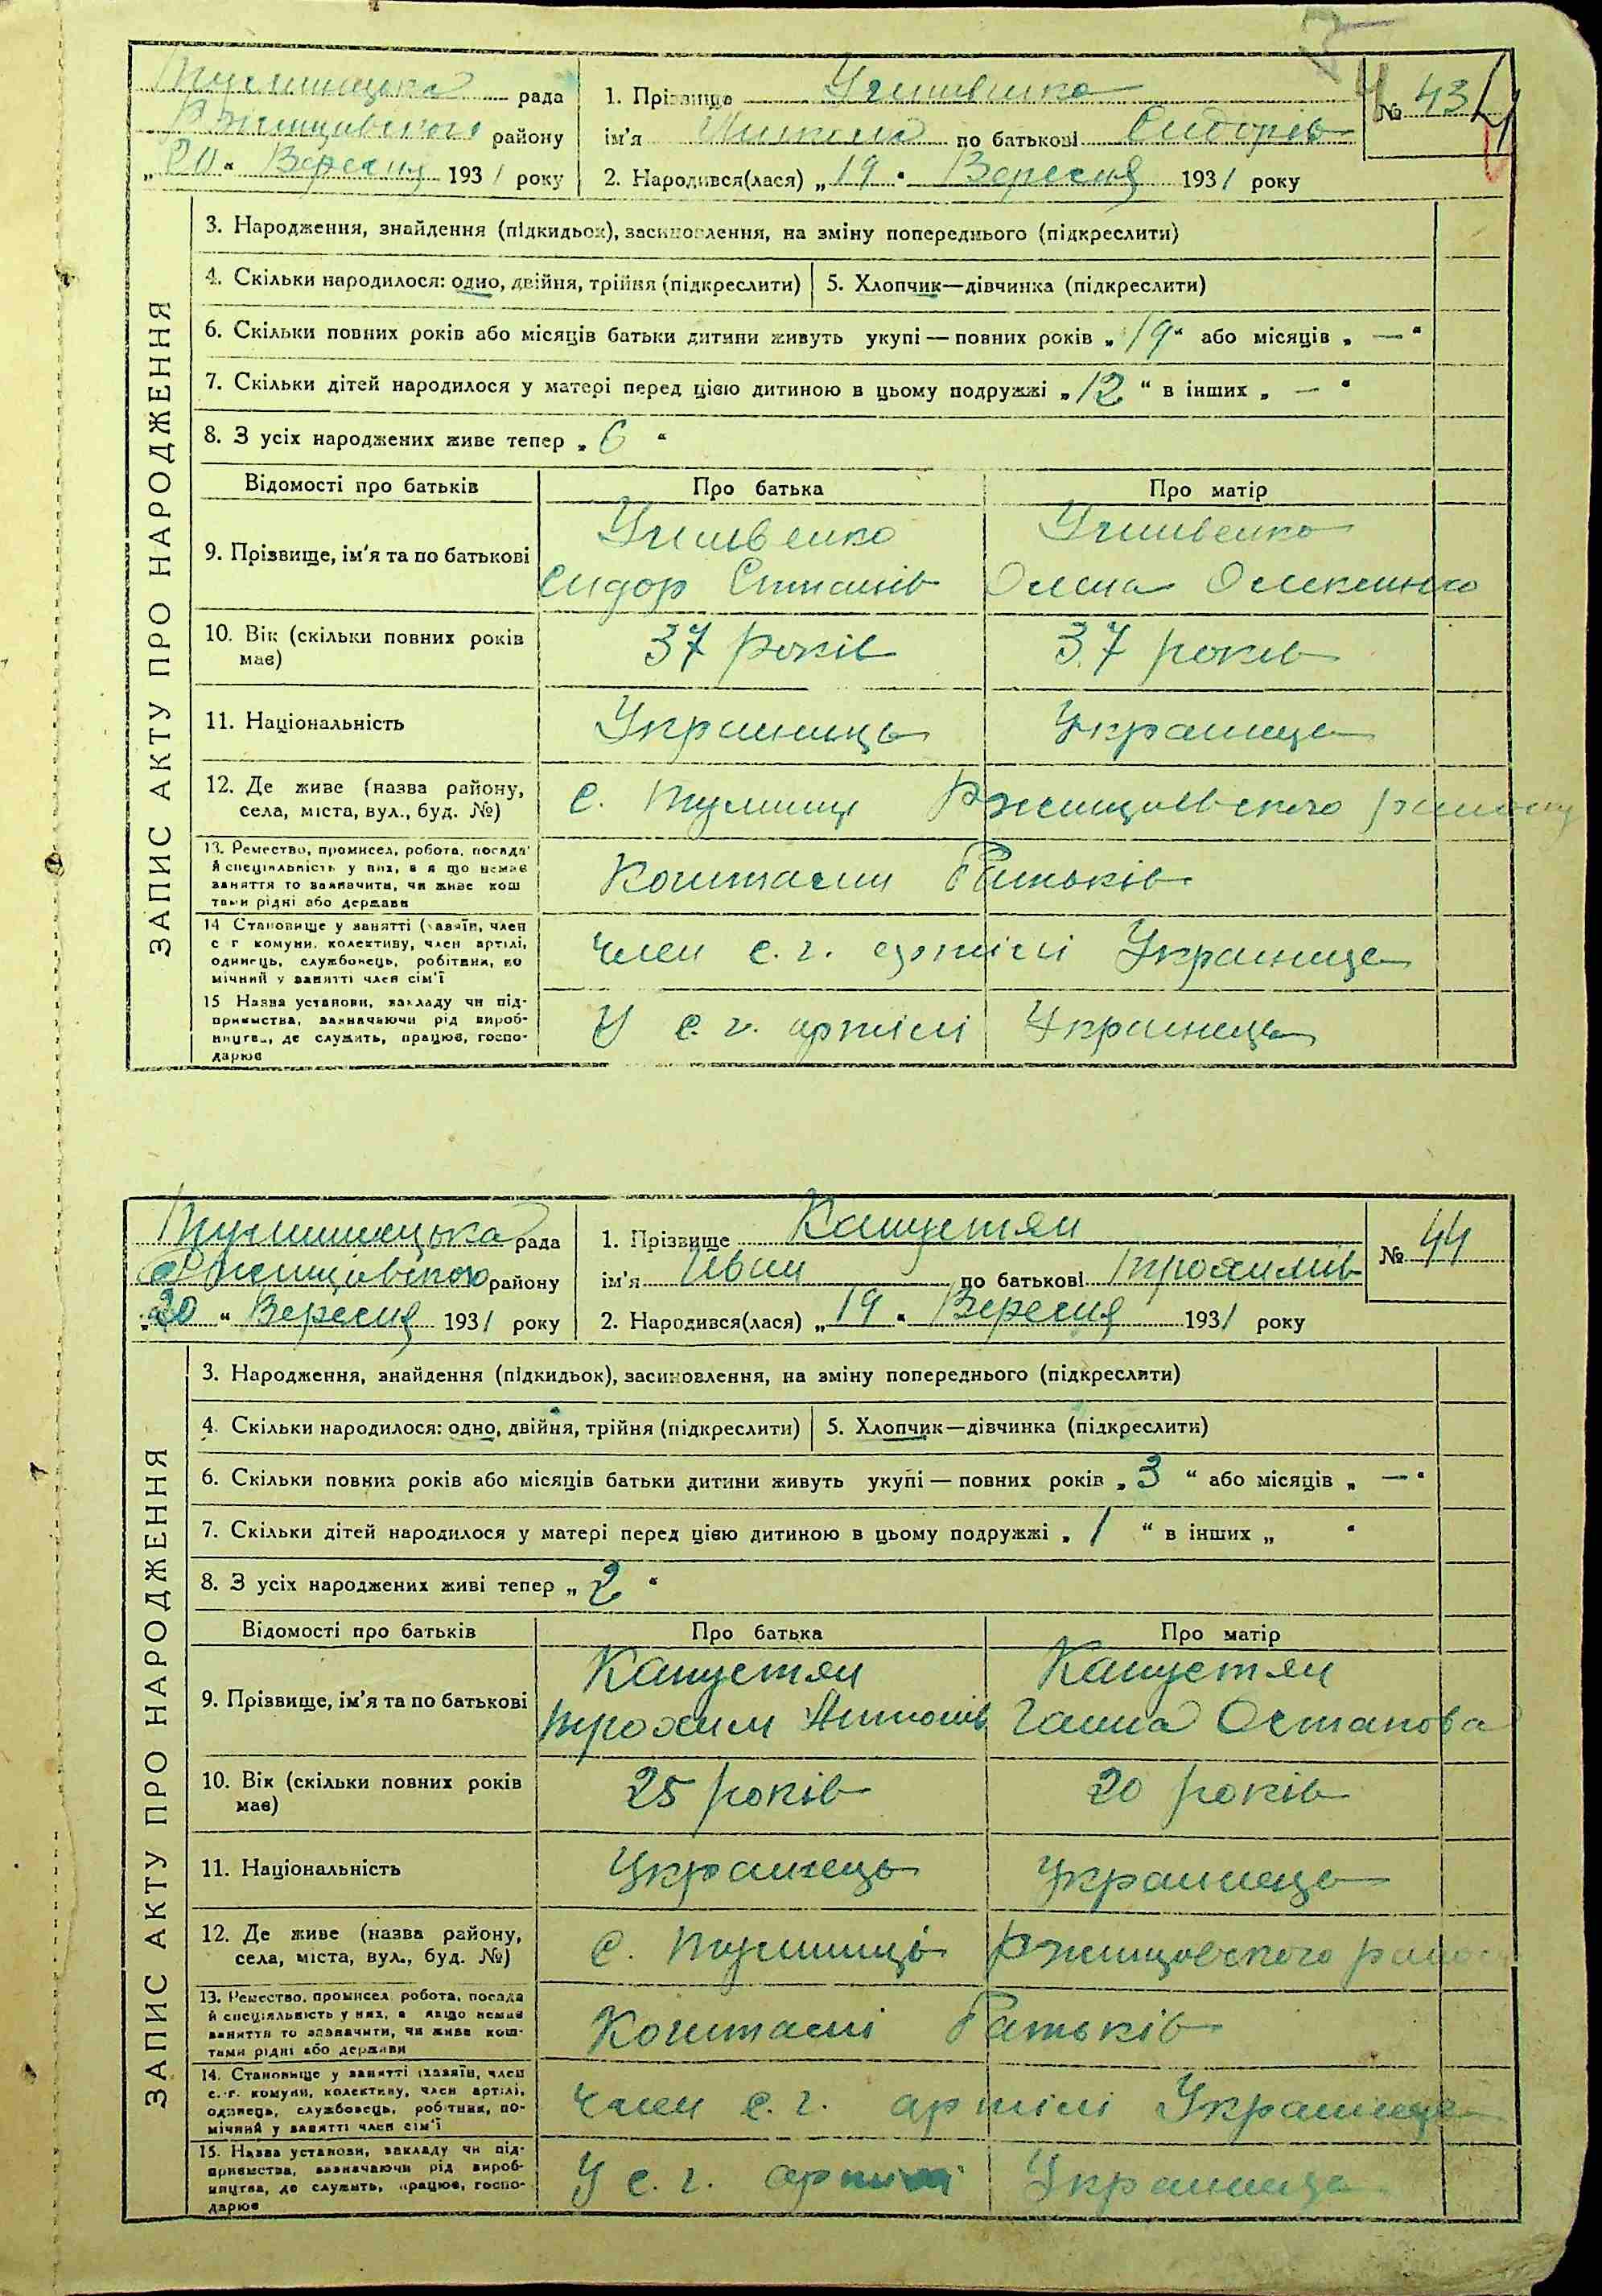 рада
району
„20“ Вересня 1931 року
1. Прізвище
ім'я по батькові Сидорів
2. Народився(лася) „19“ Вересня 1931 року
№ 43
ЗАПИС АКТУ ПРО НАРОДЖЕННЯ
3. Народження, знайдення (підкидьок), засиновлення, на зміну попереднього (підкреслити)
4. Скільки народилося: одно, двійня, трійня (підкреслити)
5. Хлопчик—дівчинка (підкреслити)
6. Скільки повних років або місяців батьки дитини живуть укупі — повних років „19“ або місяців „—“
7. Скільки дітей народилося у матері перед цією дитиною в цьому подружжі „12“ в інших „—“
8. З усіх народжених живе тепер „6“
Відомості про батьків Про батька Про матір
9. Прізвище, ім'я та по батькові
Сидор
10. Вік (скільки повних років 37 років 37 років
має)
11. Національність Українець Українець
12. Де живе (назва району,
села, міста, вул., буд. №)
с. Ржищівського району
13. Ремество, промисел, робота, посада
й спеціяльність у них, а якщо немає
заняття то зазначити, чи живе кош
тами рідні або держави
Коштами Батьків
14 Становище у занятті (хазяїн, член
с г комуни, колективу, член артілі,
одинець, службовець, робітник, по
мічний у занятті член сім'ї
член с. г. артілі Українець
15 Назва установи, закладу чи під-
приємства, зазначаючи рід вироб-
ництва, де служить, працює, госпо-
дарює
У с. г. артілі Українець
рада
Ржищівського району
„20“ Вересня 1931 року
1. Прізвище Капустян
ім'я Іван по батькові Трохимів
2. Народився(лася) „19“ Вересня 1931 року
№ 44
ЗАПИС АКТУ ПРО НАРОДЖЕННЯ
3. Народження, знайдення (підкидьок), засиновлення, на зміну попереднього (підкреслити)
4. Скільки народилося: одно, двійня, трійня (підкреслити)
5. Хлопчик—дівчинка (підкреслити)
6. Скільки повних років або місяців батьки дитини живуть укупі — повних років „3“ або місяців „—“
7. Скільки дітей народилося у матері перед цією дитиною в цьому подружжі „1“ в інших „ “
8. З усіх народжених живі тепер „2“
Відомості про батьків Про батька Про матір
9. Прізвище, ім'я та по батькові
Капустян Капустян
Трохим Антонів Ганна Остапова
10. Вік (скільки повних років 25 років 20 років
має)
11. Національність Українець Українець
12. Де живе (назва району,
села, міста, вул., буд. №)
с. Ржищовского району
13. Ремество, промисел робота, посада
й спеціяльність у них, а якщо немає
заняття то зазначити, чи живе кош-
тами рідні або держави
Коштами Батьків
14. Становище у занятті (хазяїн, член
с.-г. комуни, колективу, член артілі,
одинець, службовець, робітник, по-
мічний у занятті член сім'ї
член с. г. артілі Українець
15. Назва установи, закладу чи під-
приємства, зазначаючи рід вироб-
ництва, де служить, працює, госпо-
дарює
У с. г. артілі Українець